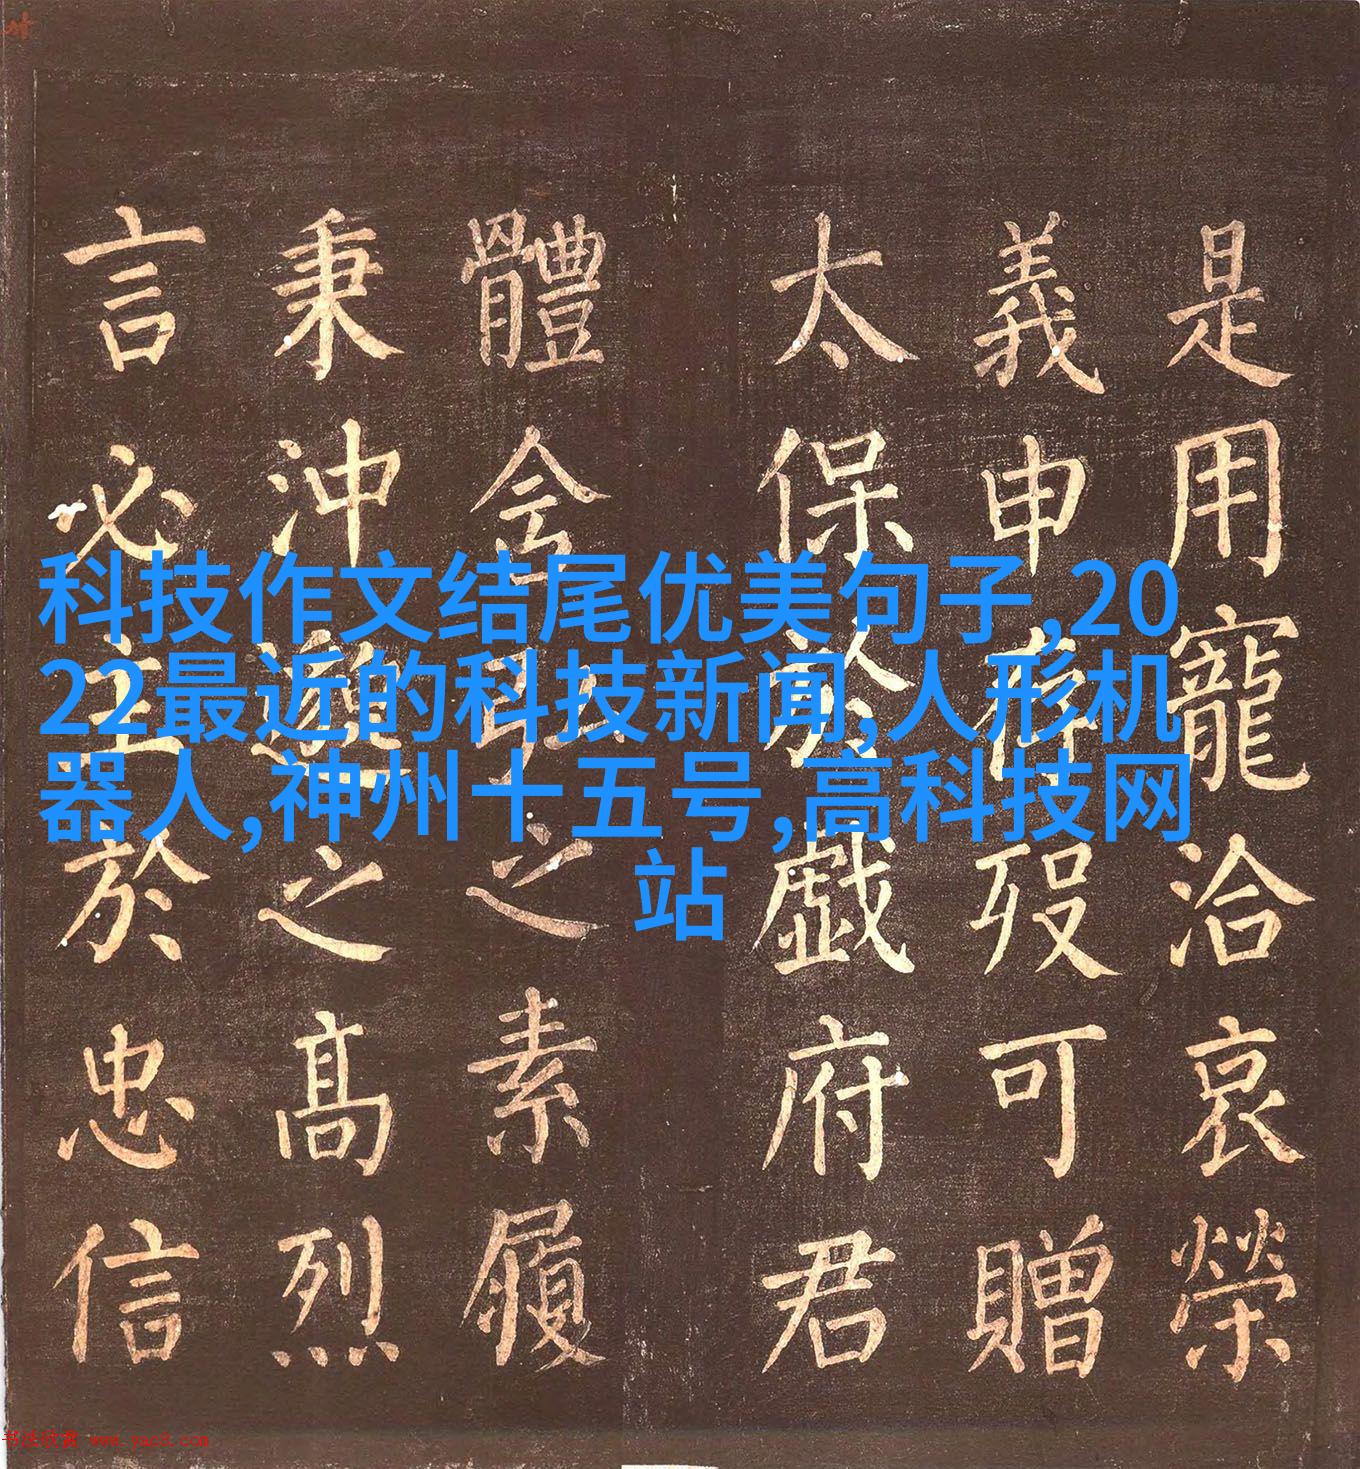 是用寵洽哀榮
義申有歿可贈
太保於戲府君
體含弘之素履
秉沖邈之髙烈
言必主於忠信
科技作文结尾优美句子,20
22最近的科技新闻,人形机
器人,神州十五号,高科技网
站
书法欣赏 www.yac8.com